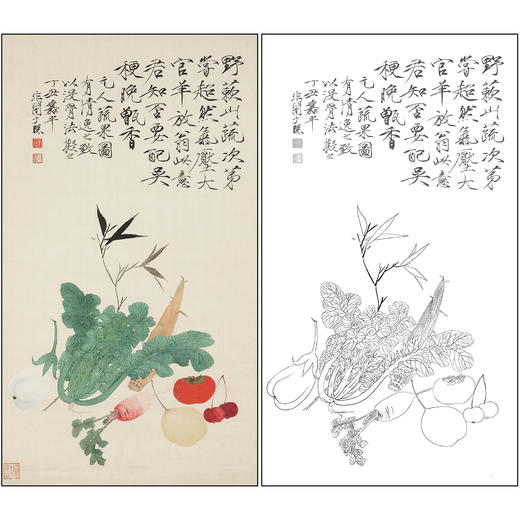 野蔌山蔬次第
嘗超然氣壓大
官羊放翁此意
君知否要配吳
粳晚甑香
元人蔬果圖
有清逸之致
以没骨法擬之
丁丑嘉平
非闇于照
野蔌山蔬次第
嘗超然氣壓大
官羊放翁此意
君知否要配吳
粳晚甑香
元人蔬果圖
有清逸之致
以没骨法擬之
丁丑嘉平
非闇于照